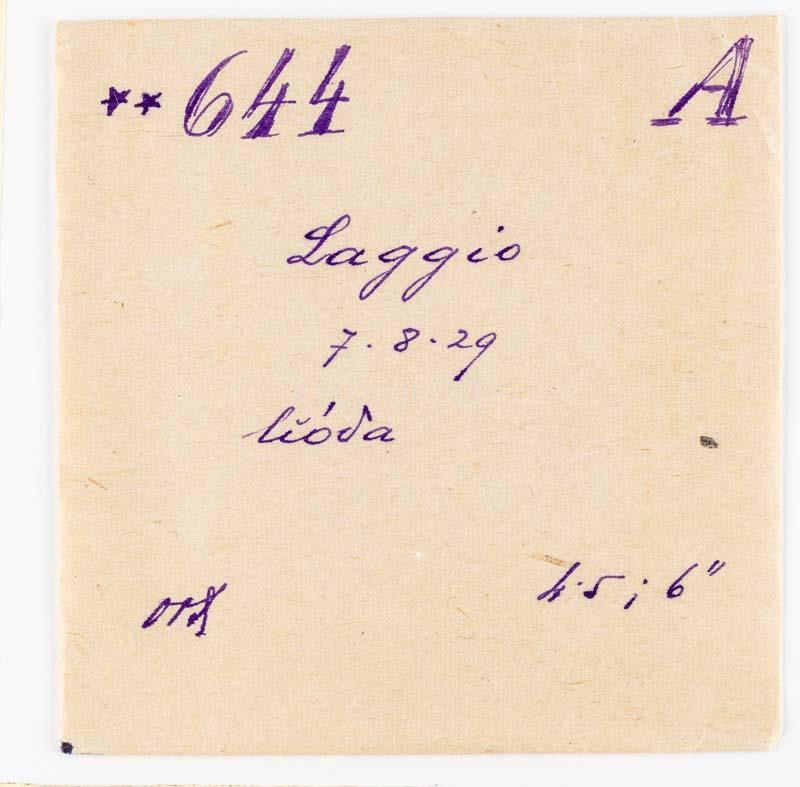 ** 644 A
Laggio
7.8.29
4.5; 6"